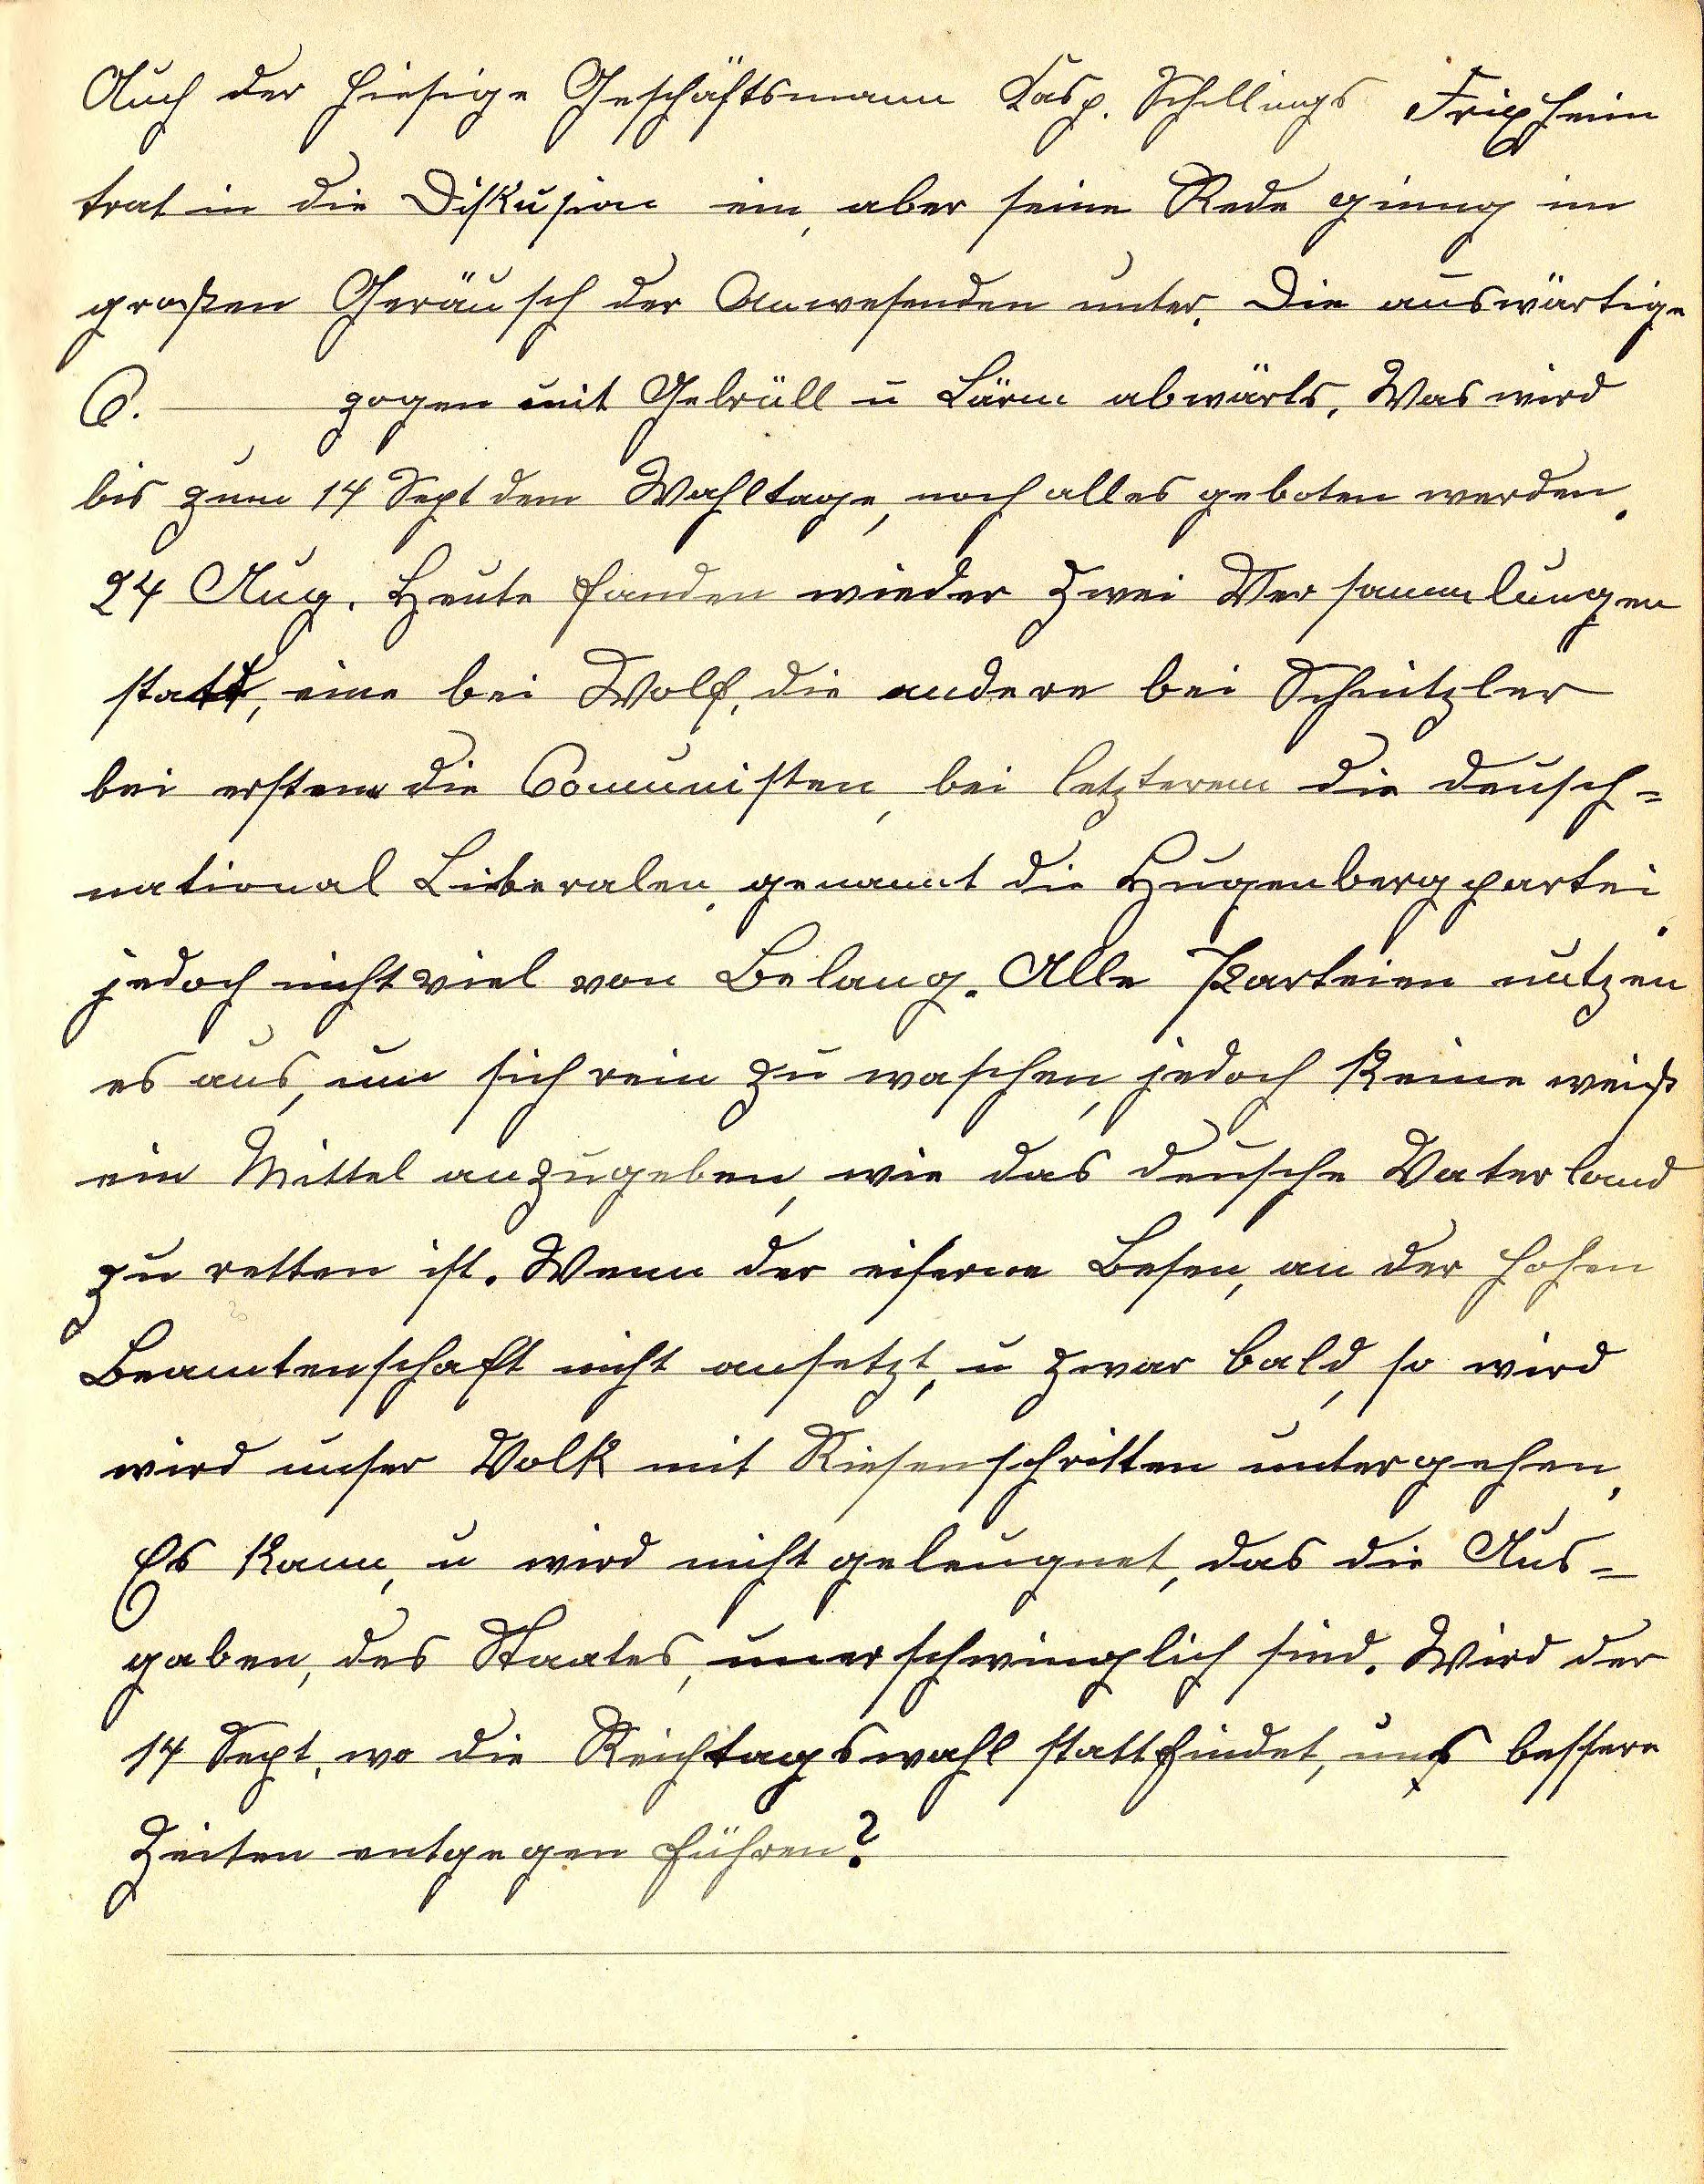 Auch der hiesige Geschäftsmann Kasp. Schillings Frixheim
trat in die Diskusion ein, aber seine Rede ginng im
großen Geräusch der Anwesenden unter. Die auswärtige
C. zogen mit Gebrüll u Lärm abwärts. Was wird
bis zum 14 Sept dem Wahltage, noch alles geboten werden.
24 Aug. Heute fanden wieder zwei Versammlungen
statt, eine bei Wolf, die andere bei Schnitzler
bei erstem die Comunisten, bei letzterem die deusch=
national Liberalen, genannt die Hugenbergpartei,
jedoch nicht viel von Belang. Alle Parteien nutzen
es aus, um sich rein zu waschen, jedoch keine weiß
ein Mittel anzugeben, wie das deusche Vaterland
zu retten ist. Wenn der eiserne Besen, an der hohen
Beamtenschaft nicht ansetzt, u zwar bald, so wird
wird unser Volk mit Riesenschritten untergehen,
Es kann, u wird nicht geleugnet, das die Aus=
gaben, des Staates, unerschwinglich sind. Wird der
14 Sept, wo die Reichtagswahl stattfindet, uns bessere
Zeiten entgegen führen?